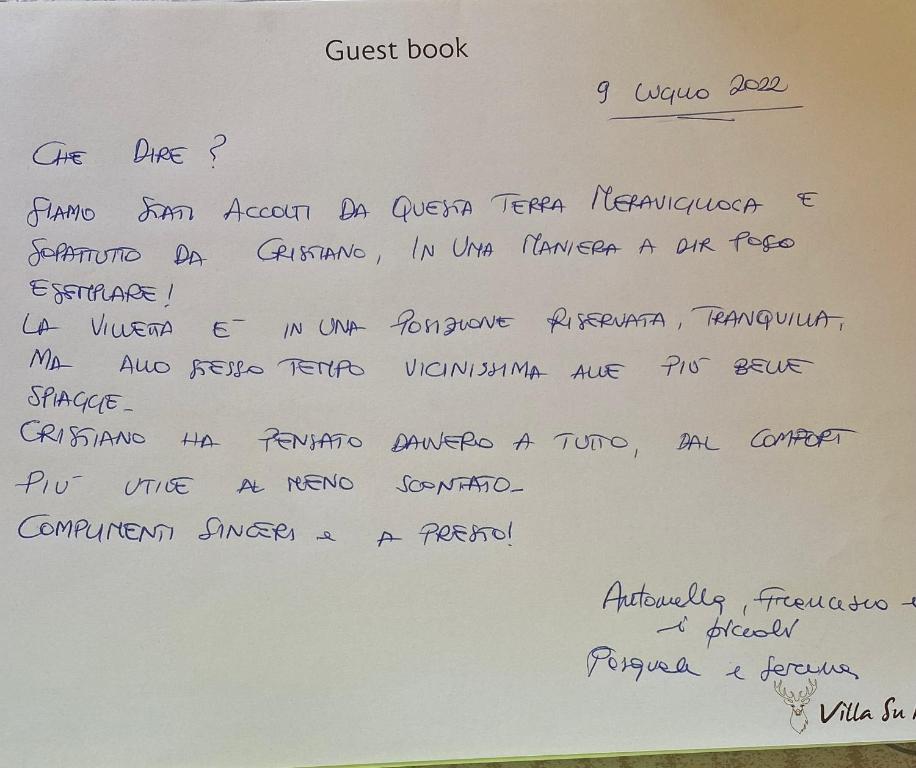 Guest book
9 LUGLIO 2022
CHE DIRE ?
SIAMO STATI ACCOLTI DA QUESTA TERRA MERAVIGLIOSA E
SOPATTUTTO DA CRISTIANO, IN UNA MANIERA A DIR POCO
ESEMPLARE!
LA VILLETTA E' IN UNA POSIZIONE RISERVATA, TRANQUILLA,
MA ALLO STESSO TEMPO VICINISSIMA ALLE PIÙ BELLE
SPIAGGE_
CRISTIANO HA PENSATO DAVVERO A TUTTO, DAL COMFORT
PIÙ UTILE AL MENO SCONTATO_
COMPLIMENTI SINCERI e A PRESTO!
Antonella, Francesco e
i piccoli
Pasquale e Serena
Villa Su